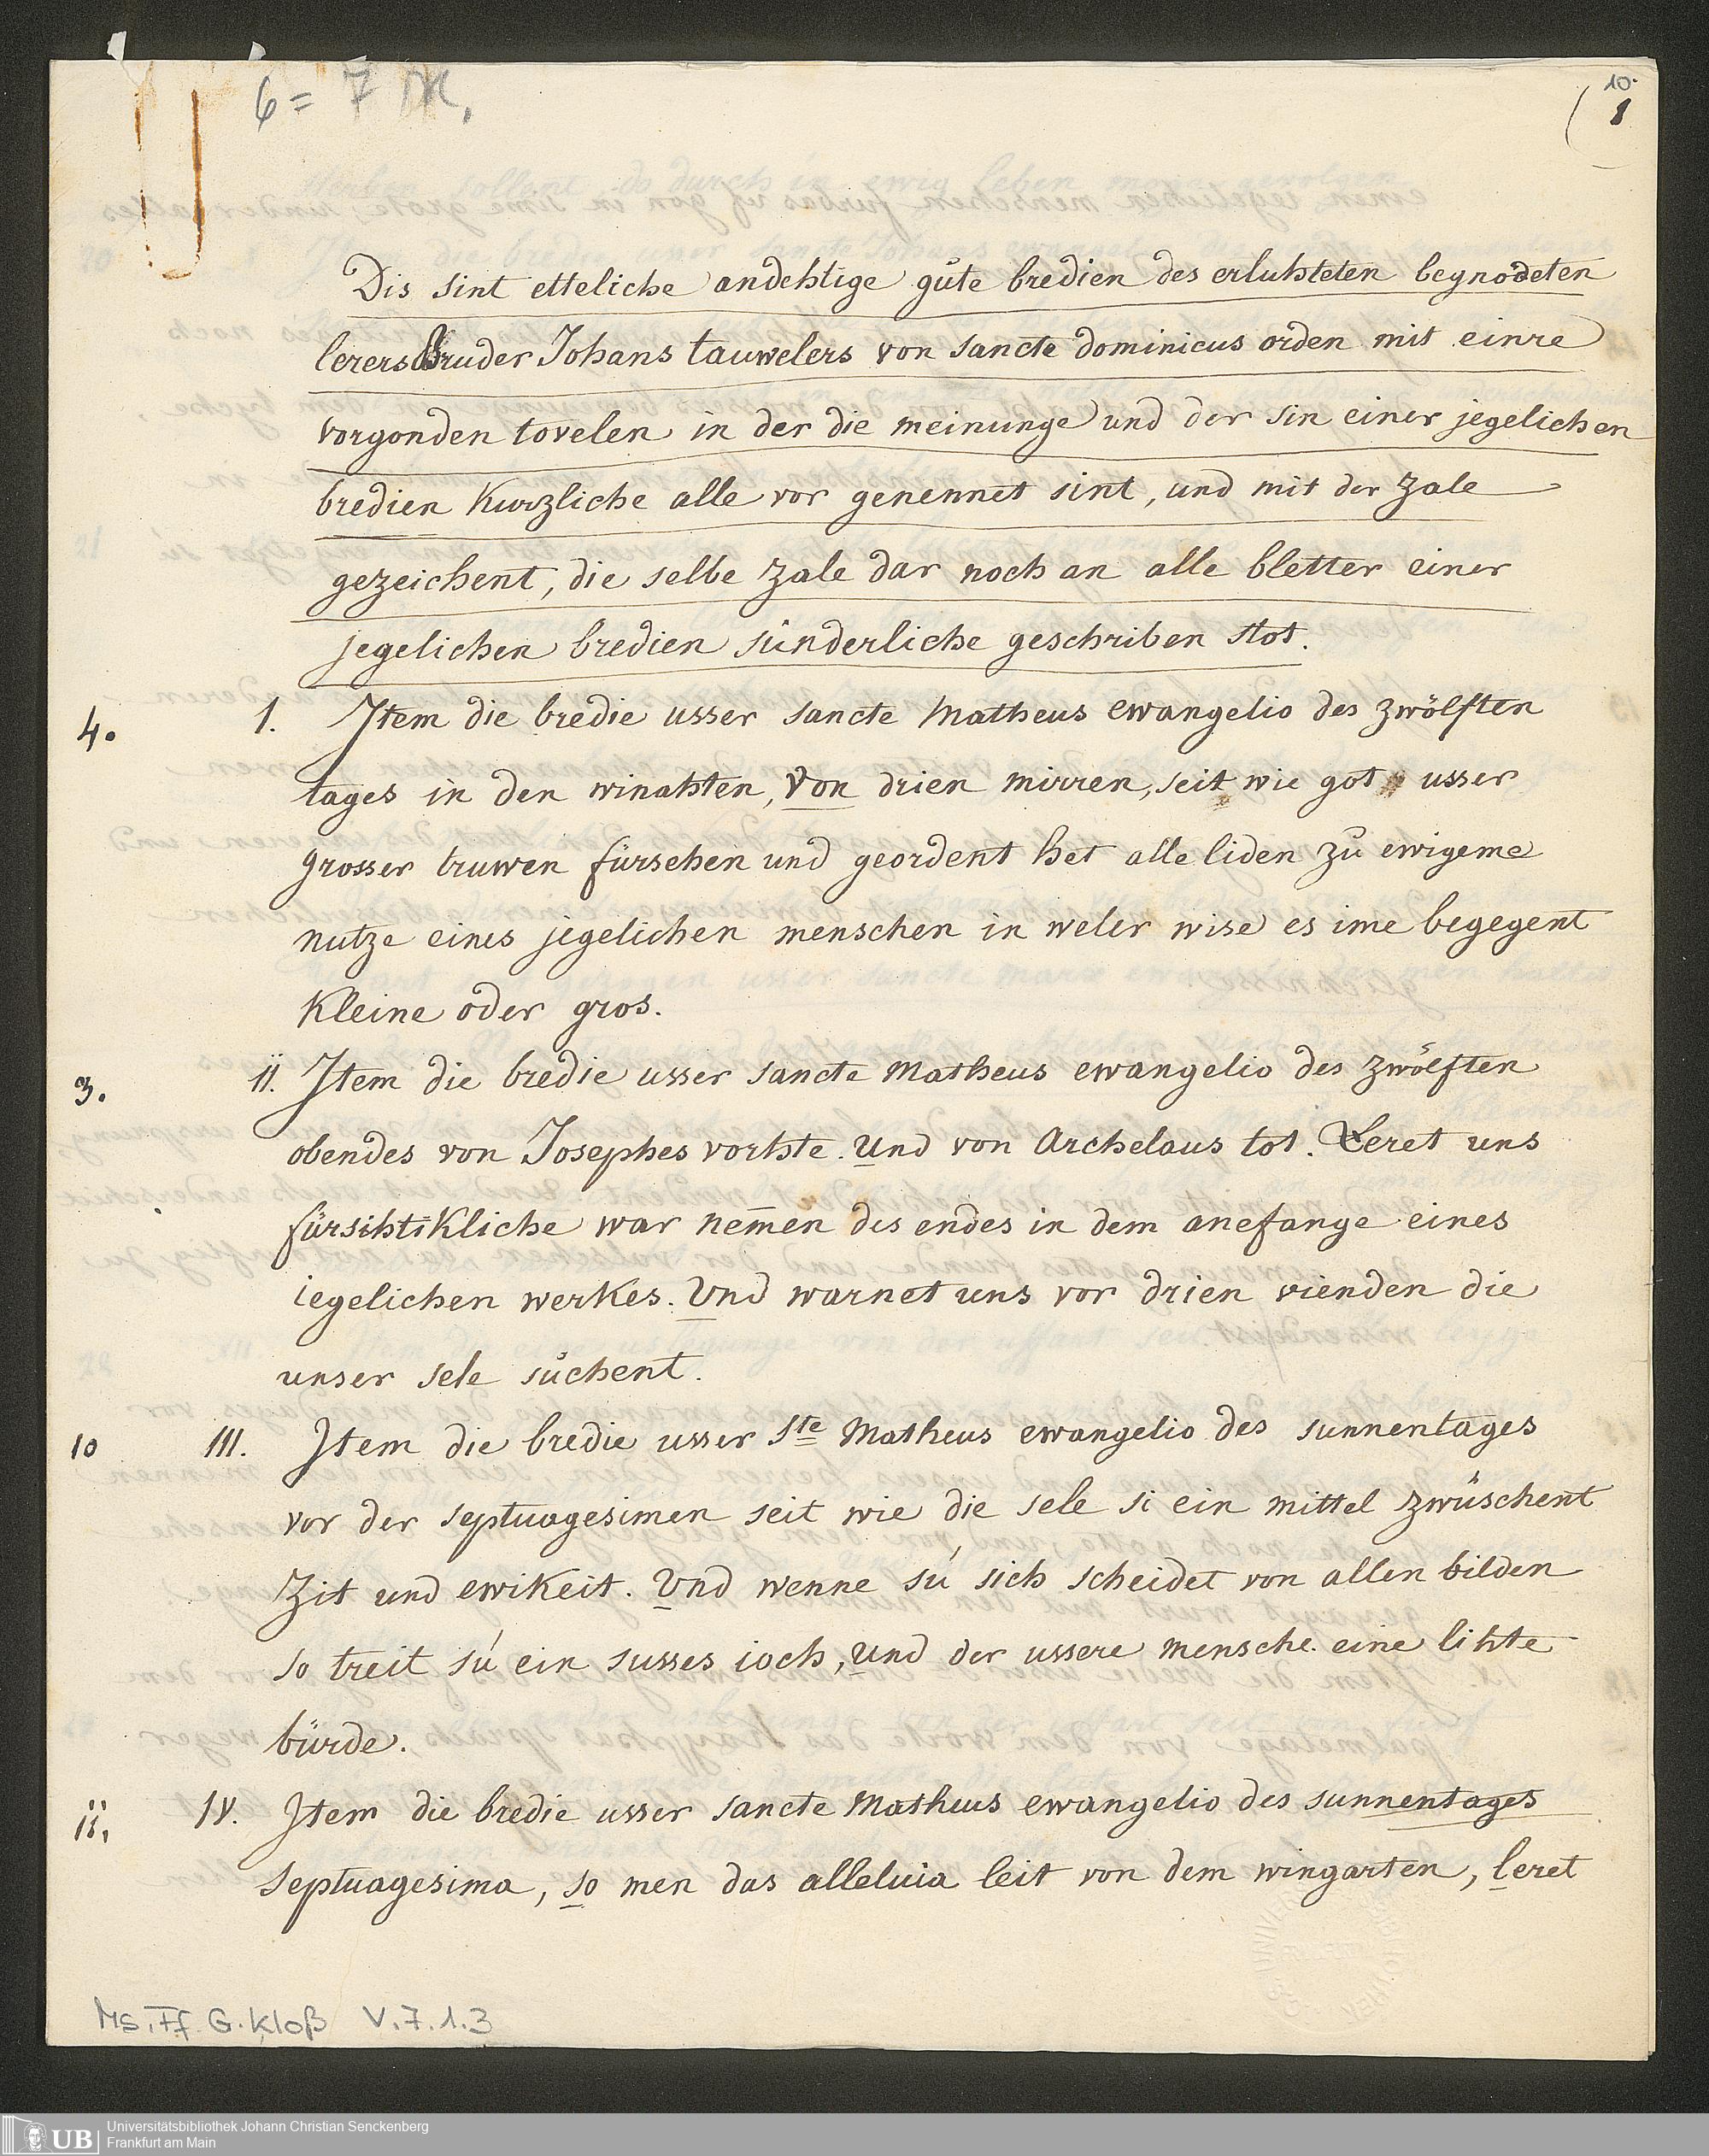 6 = 7
10.
1
Dis sint etteliche andehtige gůte bredien des erluhteten begnodeten
lerers Bruder Johans tauwelers von sancte dominicus orden mit einre
vorgonden tovelen in der die meinunge und der sin einer jegelichen
bredien Kurzliche alle vor genennet sint, und mit der zale
gezeichent, die selbe zale dar noch an alle bletter einer
jegelichen bredien sünderliche geschriben stot.
4. 1. Item die bredie usser sancte Matheus ewangelio des zwölften
tages in den winahten, Von drien mirren, seit wie got usser
grosser truwen fürsehen und geordent het alle liden zů ewigeme
nutze eines jegelichen menschen in weler wise es ime begegent
Kleine oder gros.
3. II. Item die bredie usser sancte Matheus ewangelio des zwölften
obendes von Josephes vorhte. Und von Archelaus tot. Leret uns
fürsihtiKliche war nem̄en des endes in dem anefange eines
iegelichen werkes. Und warnet uns vor drien vienden die
unser sele sůchent.
10 III. Item die bredie usser Ste Matheus ewangelio des sunnentages
vor der septuagesimen seit wie die sele si ein mittel zwüschent
Zit und ewikeit. Und wenne sú sich scheidet von allen bilden
so treit sú ein susses ioch, und der ussere mensche eine lihte
bürde.
ii. IV. Item die bredie usser sancte Matheus ewangelio des sunnentages
septuagesima, so men das alleluia leit von dem wingarten, leret
Ms. Ff. G. Kloß V.7.1.3
UB
Universitätsbibliothek Johann Christian Senckenberg
Frankfurt am Main